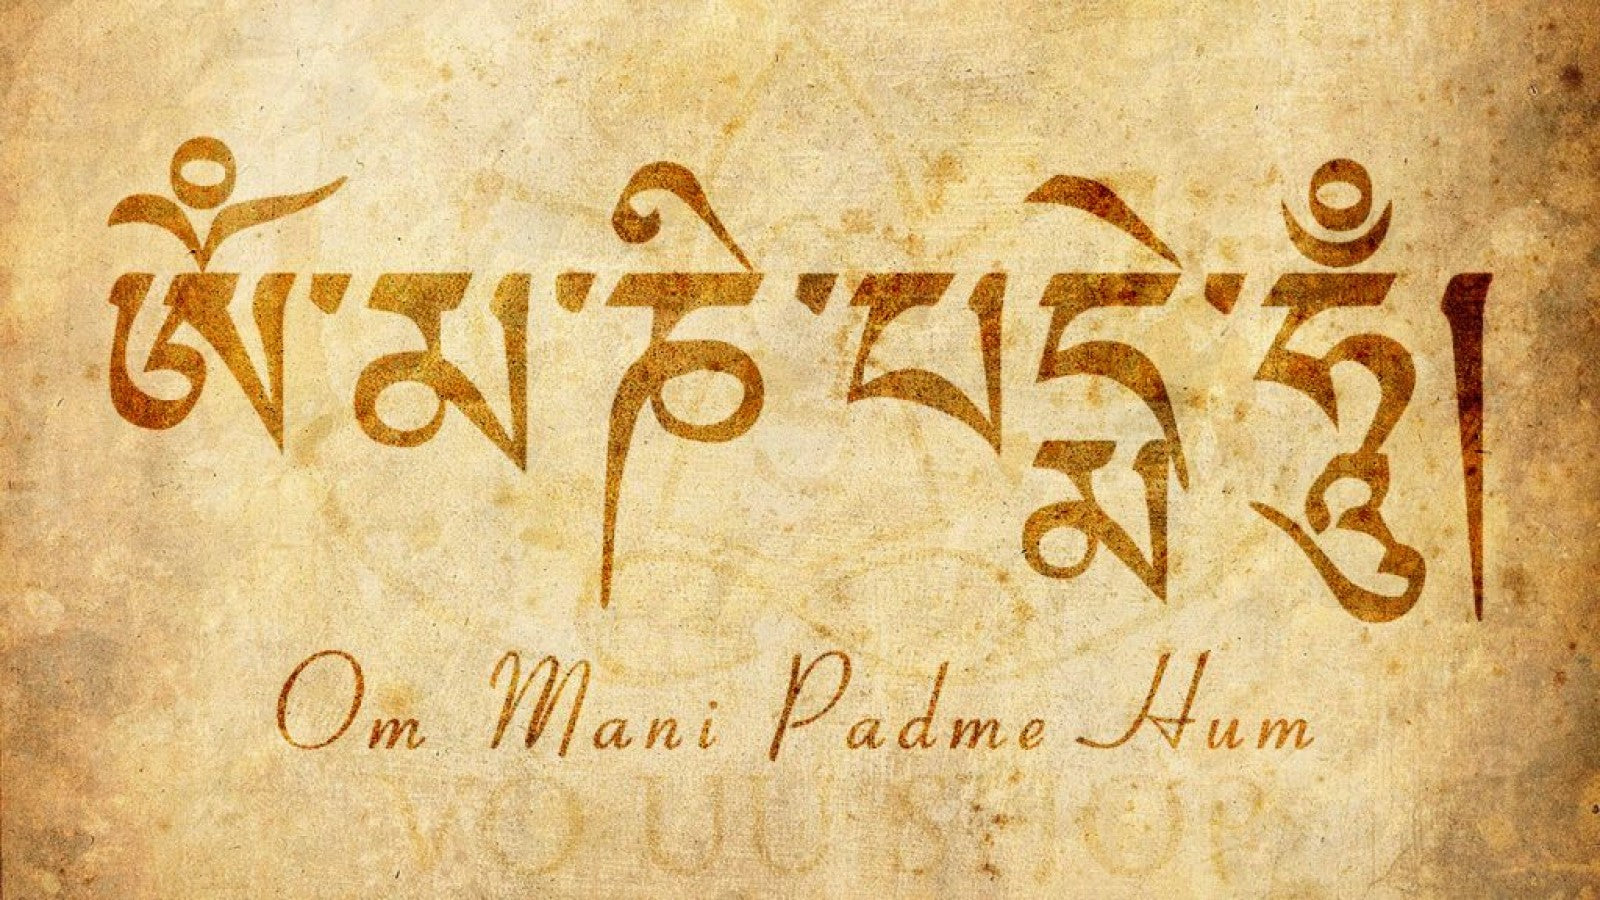 ཨོཾ་མ་ཎི་པདྨེ་ཧཱུྃ།
Om Mani Padme Hum
YOUUSHOP